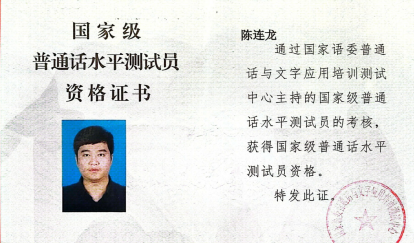 国家级
普通话水平测试员
资格证书
陈连龙
通过国家语委普通
话与文字应用培训测试
中心主持的国家级普通
话水平测试员的考核，
获得国家级普通话水平
测试员资格。
特发此证。